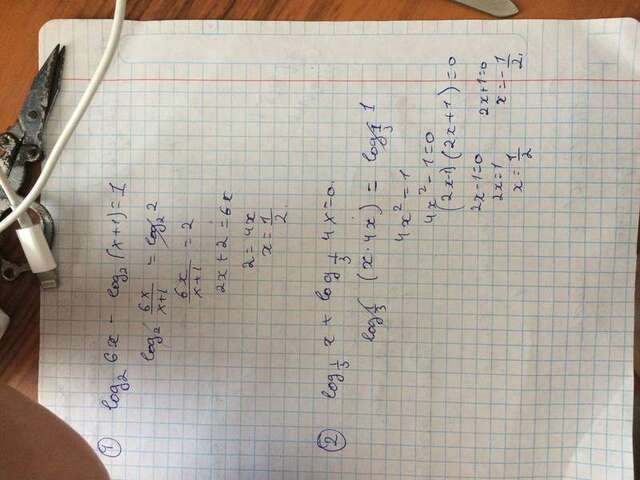 ① log₂ 6x - log₂ (x+1) = 1
log₂ 6x/(x+1) = log₂ 2
6x/(x+1) = 2
2x + 2 = 6x
2 = 4x
x = 1/2.
② log_{1/3} x + log_{1/3} 4x = 0.
log_{1/3} (x · 4x) = log_{1/3} 1
4x² = 1
4x² - 1 = 0
(2x-1)(2x+1) = 0
2x-1=0 2x+1=0
2x=1 x = -1/2.
x = 1/2